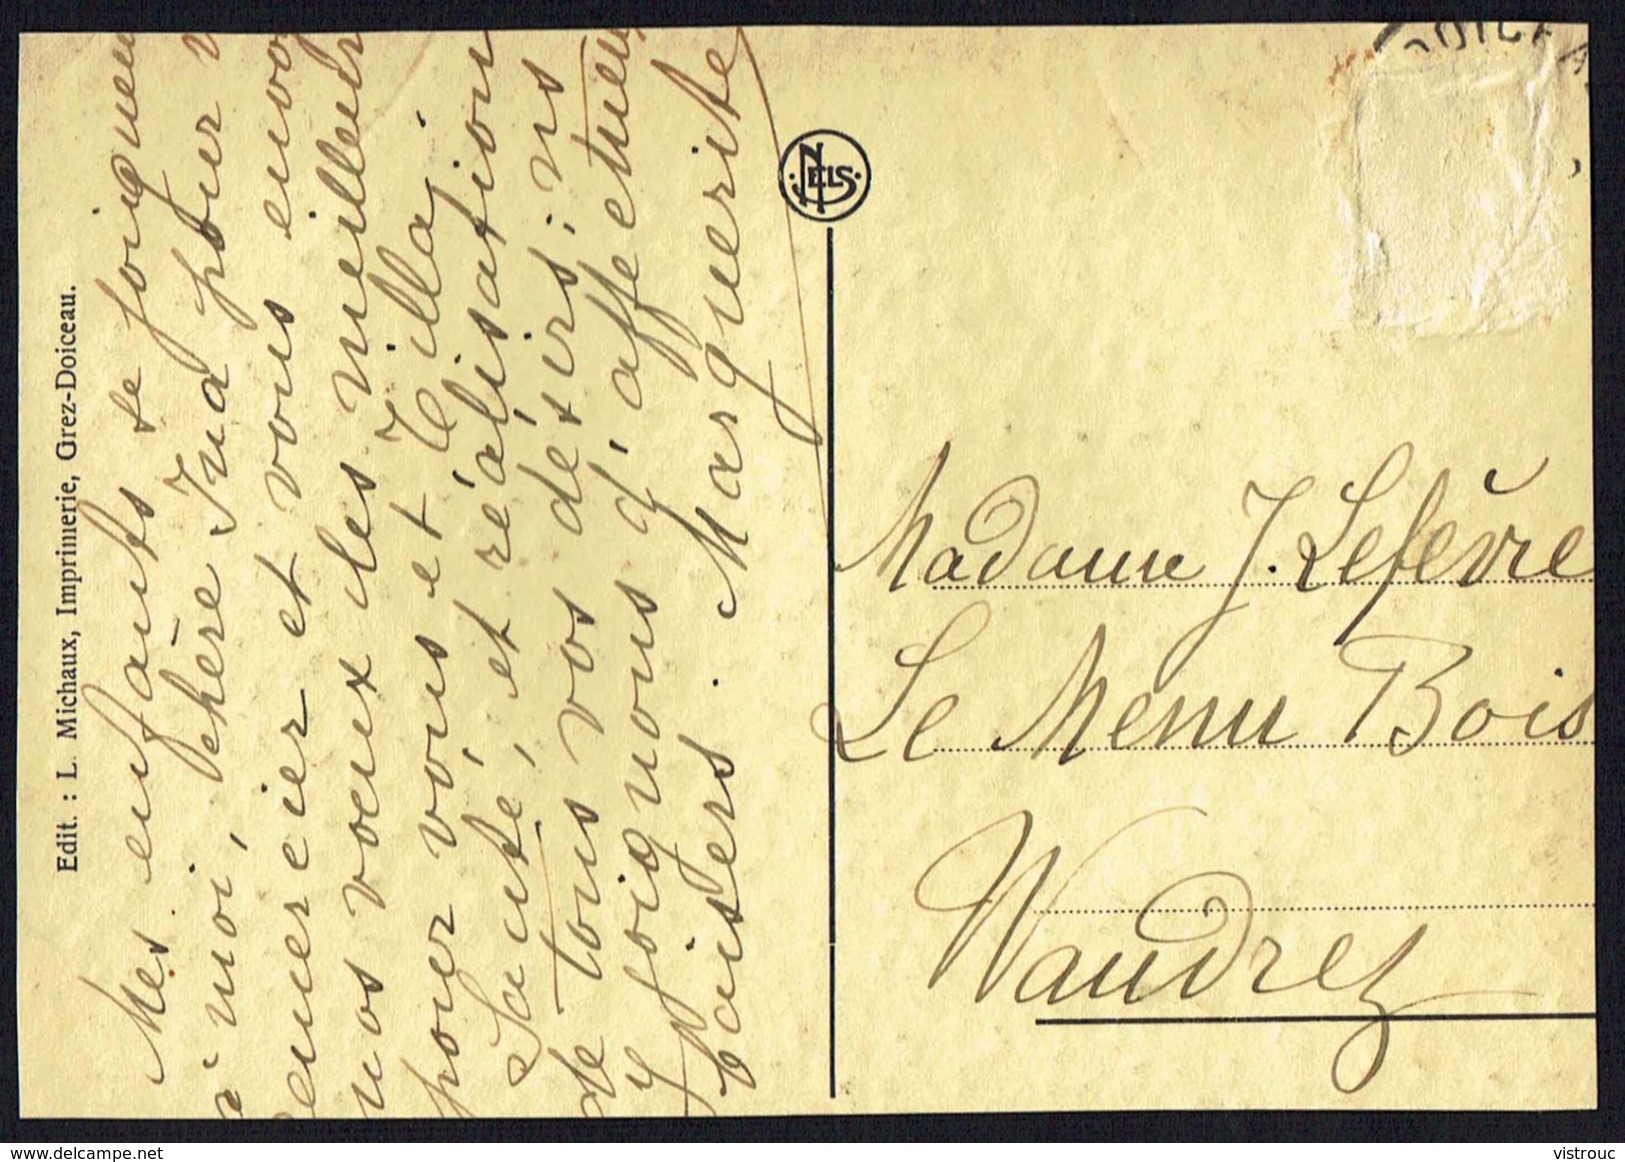 Edit. : L. Michaux, Imprimerie, Grez-Doiceau.
Mes enfants se joignen
à moi, chère Ina pour v
emercier et vous envoy
nos vœux les meilleur
pour vous et Cilla,
Santé, et réalisation
de tous vos désirs : ns
y joignons d'affectueu
baisers. Marguerite
NELS
DOICEA
Madame J. Lefèvre
Le Menu Bois
Waudrez
delcampe.net
vistrouc